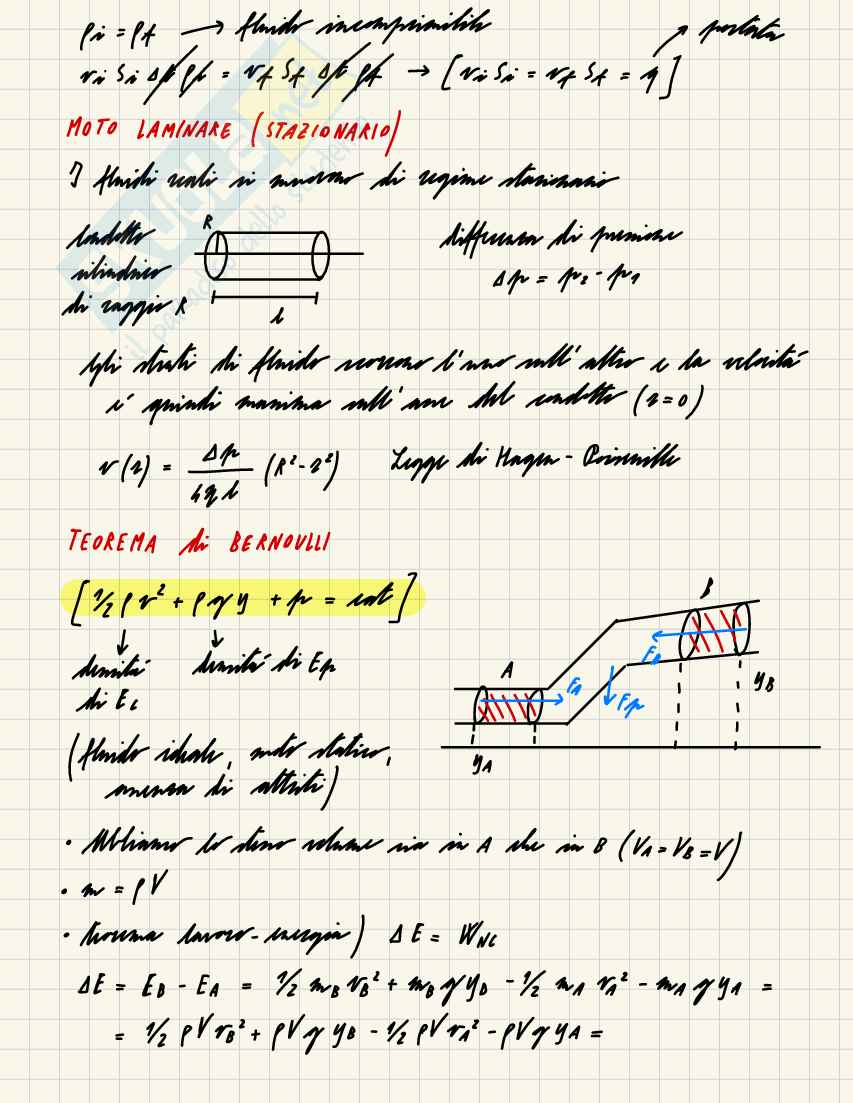 ρi = ρf → fluido incomprimibile portata
vi Si Δt ρi = vf Sf Δt ρf → [vi Si = vf Sf = q]
MOTO LAMINARE (STAZIONARIO)
I fluidi reali si muovono di regime stazionario
Condotto
cilindrico
di raggio R
R
l
differenza di pressione
Δp = p2 - p1
Gli strati di fluido scorrono l'uno sull'altro e la velocità
è quindi massima sull'asse del condotto (r=0)
v(r) = Δp / 4ηl (R² - r²) Legge di Hagen - Poiseuille
TEOREMA di BERNOULLI
[1/2 ρv² + ρgy + p = cost]
densità di Ec
densità di Ep
(fluido ideale, moto statico,
assenza di attriti)
A
B
FA
FB
Fp
yA
yB
• Abbiamo lo stesso volume sia in A che in B (VA = VB = V)
• m = ρV
• teorema lavoro-energia) ΔE = WNC
ΔE = EB - EA = 1/2 mB vB² + mB g yB - 1/2 mA vA² - mA g yA =
= 1/2 ρV vB² + ρV g yB - 1/2 ρV vA² - ρV g yA =